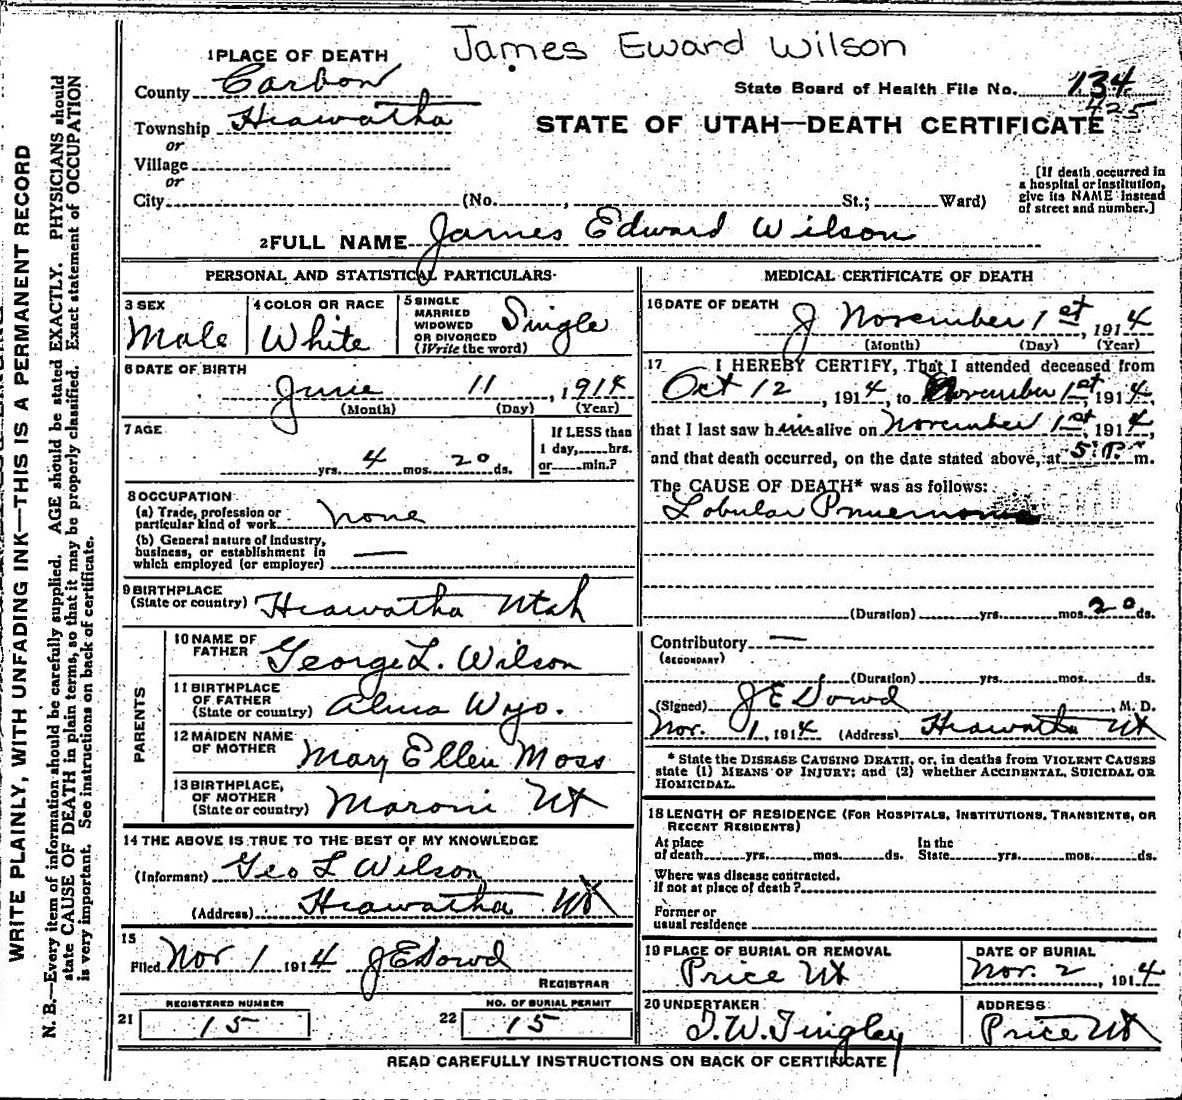 James Eward Wilson
1 PLACE OF DEATH
County Carbon
State Board of Health File No. 134
425
Township Hiawatha
STATE OF UTAH—DEATH CERTIFICATE
or
Village
or
City (No. , St.; Ward)
[If death occurred in
a hospital or institution,
give its NAME instead
of street and number.]
2 FULL NAME James Edward Wilson
PERSONAL AND STATISTICAL PARTICULARS
3 SEX
Male
4 COLOR OR RACE
White
5 SINGLE
MARRIED
WIDOWED
OR DIVORCED
(Write the word)
Single
6 DATE OF BIRTH
June 11, 1914
(Month) (Day) (Year)
7 AGE
yrs. 4 mos. 20 ds.
If LESS than
1 day, hrs.
or min.?
8 OCCUPATION
(a) Trade, profession or
particular kind of work none
(b) General nature of industry,
business, or establishment in
which employed (or employer) —
9 BIRTHPLACE
(State or country) Hiawatha Utah
PARENTS
10 NAME OF
FATHER George L. Wilson
11 BIRTHPLACE
OF FATHER
(State or country) Wyo.
12 MAIDEN NAME
OF MOTHER Mary Ellen Moss
13 BIRTHPLACE,
OF MOTHER
(State or country) Maroni Ut
14 THE ABOVE IS TRUE TO THE BEST OF MY KNOWLEDGE
(Informant) Geo L Wilson
(Address) Hiawatha Ut
15
Filed Nov 1 1914 J E Dowd
REGISTRAR
REGISTERED NUMBER
21 15
NO. OF BURIAL PERMIT
22 15
MEDICAL CERTIFICATE OF DEATH
16 DATE OF DEATH
November 1st, 1914
(Month) (Day) (Year)
17 I HEREBY CERTIFY, That I attended deceased from
Oct 12, 1914, to November 1st, 1914,
that I last saw him alive on November 1st, 1914,
and that death occurred, on the date stated above, at 5 P. m.
The CAUSE OF DEATH* was as follows:
Lobular Pnuemonia
(Duration) yrs. mos. 20 ds.
Contributory —
(SECONDARY)
(Duration) yrs. mos. ds.
(Signed) J E Dowd, M. D.
Nov. 1, 1914 (Address) Hiawatha Ut
* State the DISEASE CAUSING DEATH, or, in deaths from VIOLENT CAUSES
state (1) MEANS OF INJURY; and (2) whether ACCIDENTAL, SUICIDAL OR
HOMICIDAL.
18 LENGTH OF RESIDENCE (FOR HOSPITALS, INSTITUTIONS, TRANSIENTS, OR
RECENT RESIDENTS)
At place
of death yrs. mos. ds.
In the
State yrs. mos. ds.
Where was disease contracted,
if not at place of death?
Former or
usual residence
19 PLACE OF BURIAL OR REMOVAL
Price Ut
DATE OF BURIAL
Nov. 2, 1914
20 UNDERTAKER
J. W. Tingley
ADDRESS
Price Ut
READ CAREFULLY INSTRUCTIONS ON BACK OF CERTIFICATE
WRITE PLAINLY, WITH UNFADING INK—THIS IS A PERMANENT RECORD
N. B.—Every item of information should be carefully supplied. AGE should be stated EXACTLY. PHYSICIANS should
state CAUSE OF DEATH in plain terms, so that it may be properly classified. Exact statement of OCCUPATION
is very important. See instructions on back of certificate.